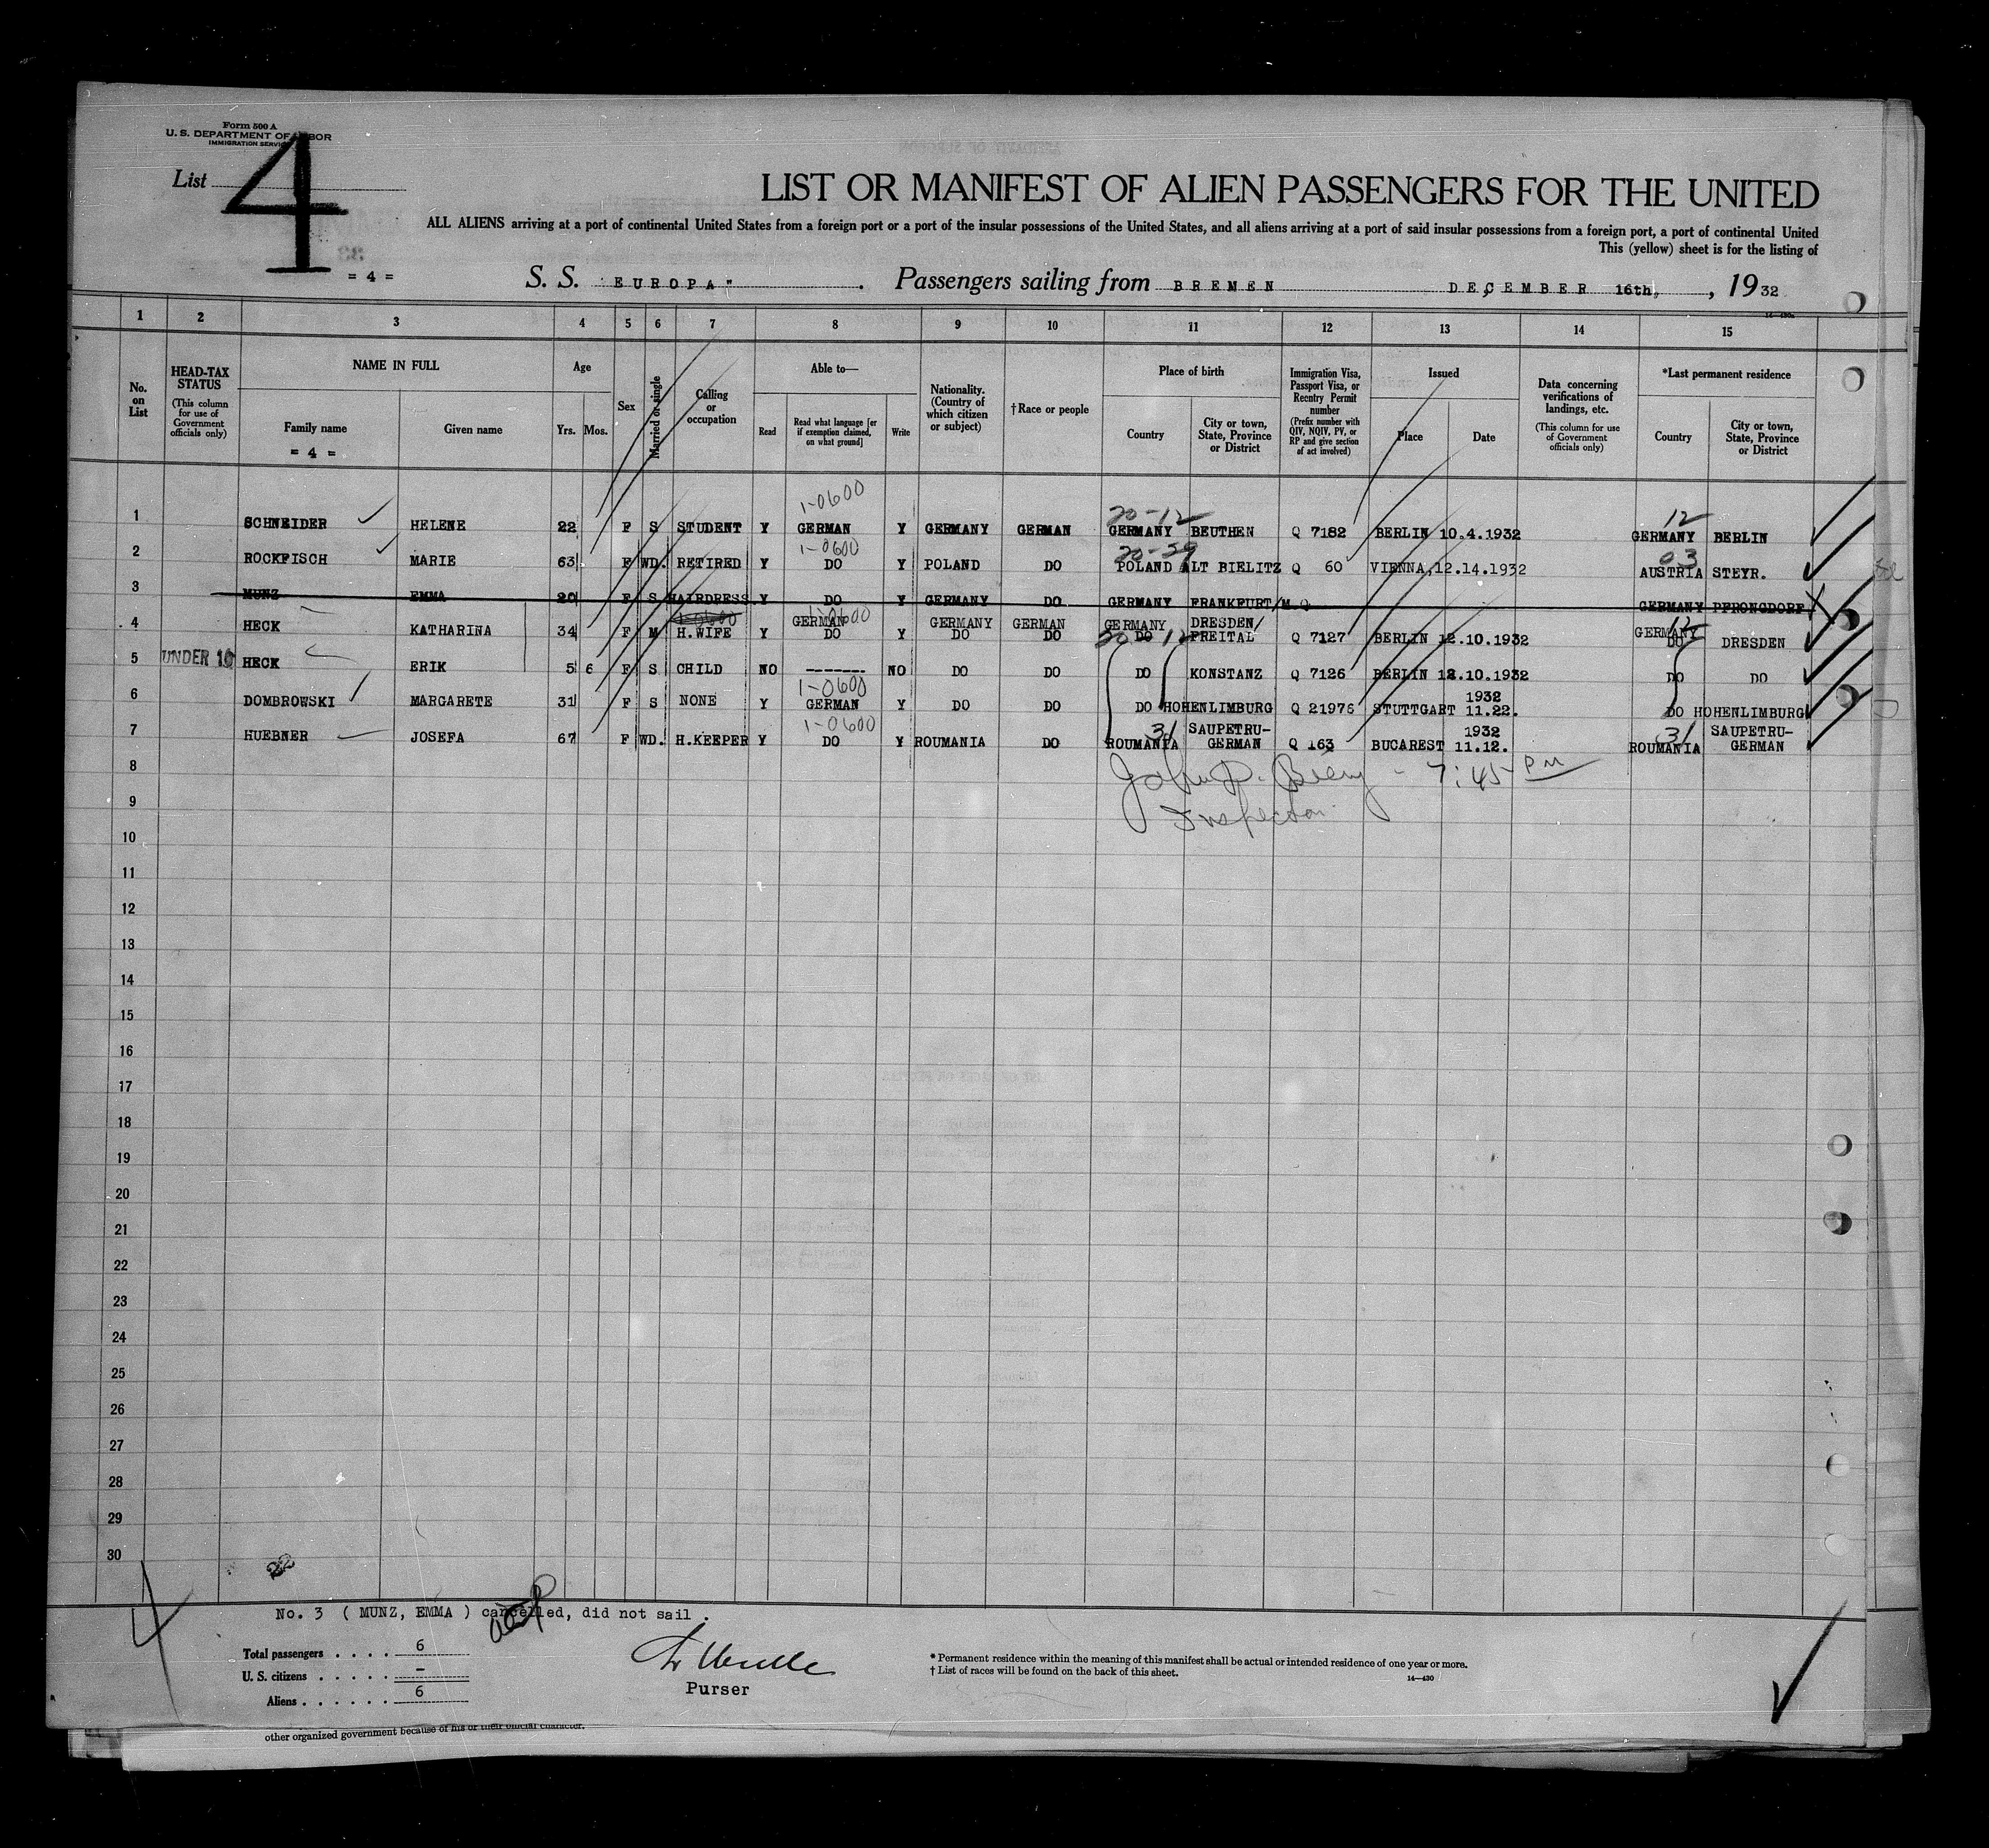 Form 500 A
U. S. DEPARTMENT OF LABOR
IMMIGRATION SERVICE
List 4
= 4 =
LIST OR MANIFEST OF ALIEN PASSENGERS FOR THE UNITED
ALL ALIENS arriving at a port of continental United States from a foreign port or a port of the insular possessions of the United States, and all aliens arriving at a port of said insular possessions from a foreign port, a port of continental United
This (yellow) sheet is for the listing of
S. S. "EUROPA" . Passengers sailing from BREMEN DECEMBER 16th, , 1932
1 2 3 4 5 6 7 8 9 10 11 12 13 14 15
No. on List
HEAD-TAX STATUS (This column for use of Government officials only)
NAME IN FULL
Family name
= 4 =
Given name
Age
Yrs. Mos.
Sex
Married or single
Calling or occupation
Able to—
Read
Read what language [or if exemption claimed, on what ground]
Write
Nationality. (Country of which citizen or subject)
†Race or people
Place of birth
Country
City or town, State, Province or District
Immigration Visa, Passport Visa, or Reentry Permit number (Prefix number with QIV, NQIV, PV, or RP and give section of act involved)
Issued
Place
Date
Data concerning verifications of landings, etc. (This column for use of Government officials only)
*Last permanent residence
Country
City or town, State, Province or District
1-0600 20-12 12
1 SCHNEIDER HELENE 22 F S STUDENT Y GERMAN Y GERMANY GERMAN GERMANY BEUTHEN Q 7182 BERLIN 10.4.1932 GERMANY BERLIN
1-0600 03
2 ROCKFISCH MARIE 63 F WD. RETIRED Y DO Y POLAND DO POLAND ALT BIELITZ Q 60 VIENNA,12.14.1932 AUSTRIA STEYR.
3 MUNZ EMMA 20 F S HAIRDRESS. Y DO Y GERMANY DO GERMANY FRANKFURT/M Q GERMANY PFRONGDORF
GERMAN GERMANY GERMAN GERMANY DRESDEN/ GERMANY
4 HECK KATHARINA 34 F M H.WIFE Y DO Y DO DO DO FREITAL Q 7127 BERLIN 12.10.1932 DO DRESDEN
5 UNDER 16 HECK ERIK 5 6 F S CHILD NO ------- NO DO DO DO KONSTANZ Q 7126 BERLIN 12.10.1932 DO DO
1-0600 1932
6 DOMBROWSKI MARGARETE 31 F S NONE Y GERMAN Y DO DO DO HOHENLIMBURG Q 21976 STUTTGART 11.22. DO HOHENLIMBURG
1-0600 31 SAUPETRU- 1932 31 SAUPETRU-
7 HUEBNER JOSEFA 67 F WD. H.KEEPER Y DO Y ROUMANIA DO ROUMANIA GERMAN Q 163 BUCAREST 11.12. ROUMANIA GERMAN
8
John P. - 7:45 PM
9
Inspector.
10
11
12
13
14
15
16
17
18
19
20
21
22
23
24
25
26
27
28
29
30
No. 3 ( MUNZ, EMMA ) cancelled, did not sail .
Total passengers . . . . 6
U. S. citizens . . . . . –
Aliens . . . . . . 6
Purser
* Permanent residence within the meaning of this manifest shall be actual or intended residence of one year or more.
† List of races will be found on the back of this sheet.
14—430
other organized government because of his or their official character.